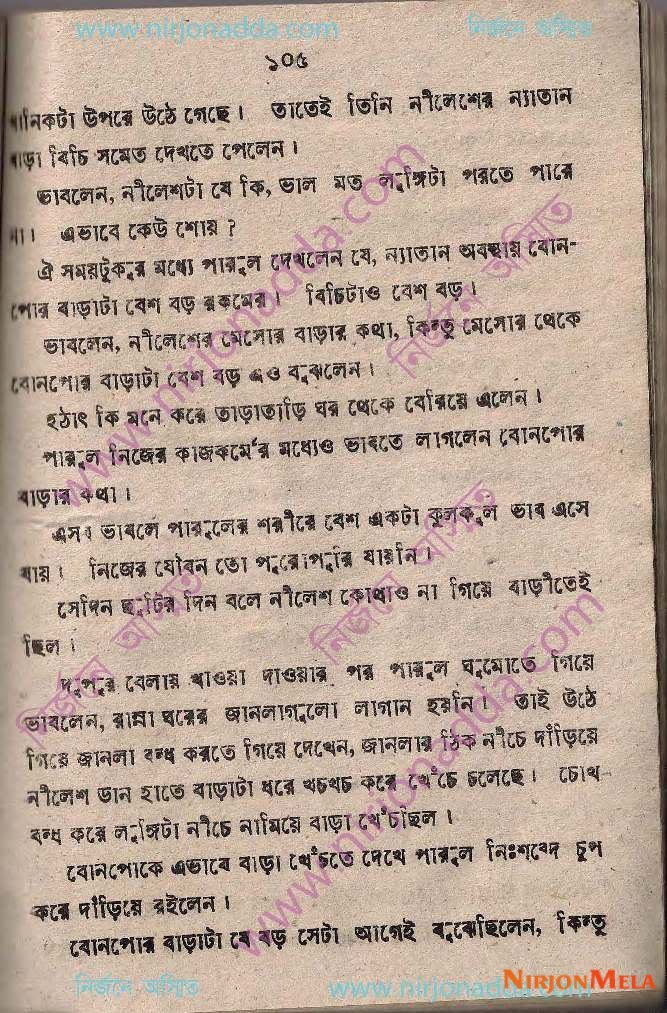 www.nirjonadda.com নির্জনে অস্মিত
১০৫
খানিকটা উপরে উঠে গেছে। তাতেই তিনি নীলেশের ন্যাতান
বাড়া বিচি সমেত দেখতে পেলেন।
ভাবলেন, নীলেশটা যে কি, ভাল মত লুঙ্গিটা পরতে পারে
না। এভাবে কেউ শোয় ?
ঐ সময়টুকুর মধ্যে পারুল দেখলেন যে, ন্যাতান অবস্থায় বোন-
পোর বাড়াটা বেশ বড় রকমের। বিচিটাও বেশ বড়।
ভাবলেন, নীলেশের মেসোর বাড়ার কথা, কিন্তু মেসোর থেকে
বোনপোর বাড়াটা বেশ বড় এও বুঝলেন।
হঠাৎ কি মনে করে তাড়াতাড়ি ঘর থেকে বেরিয়ে এলেন।
পারুল নিজের কাজকর্মের মধ্যেও ভাবতে লাগলেন বোনপোর
বাড়ার কথা।
এসব ভাবলে পারুলের শরীরে বেশ একটা কুলকুল ভাব এসে
যায়। নিজের যৌবন তো পুরোপুরি যায়নি।
সেদিন ছুটির দিন বলে নীলেশ কোথাও না গিয়ে বাড়ীতেই
ছিল।
দুপুর বেলায় খাওয়া দাওয়ার পর পারুল ঘুমোতে গিয়ে
ভাবলেন, রান্না ঘরের জানলাগুলো লাগান হয়নি। তাই উঠে
গিয়ে জানলা বন্ধ করতে গিয়ে দেখেন, জানলার ঠিক নীচে দাঁড়িয়ে
নীলেশ ডান হাতে বাড়াটা ধরে খচখচ করে খেঁচে চলেছে। চোখ
বন্ধ করে লুঙ্গিটা নীচে নামিয়ে বাড়া খেঁচছিল।
বোনপোকে এভাবে বাড়া খেঁচতে দেখে পারুল নিঃশব্দে চুপ
করে দাঁড়িয়ে রইলেন।
বোনপোর বাড়াটা যে বড় সেটা আগেই বুঝেছিলেন, কিন্তু
নির্জনে অস্মিত www.nirjonadda.com
NIRJONMELA